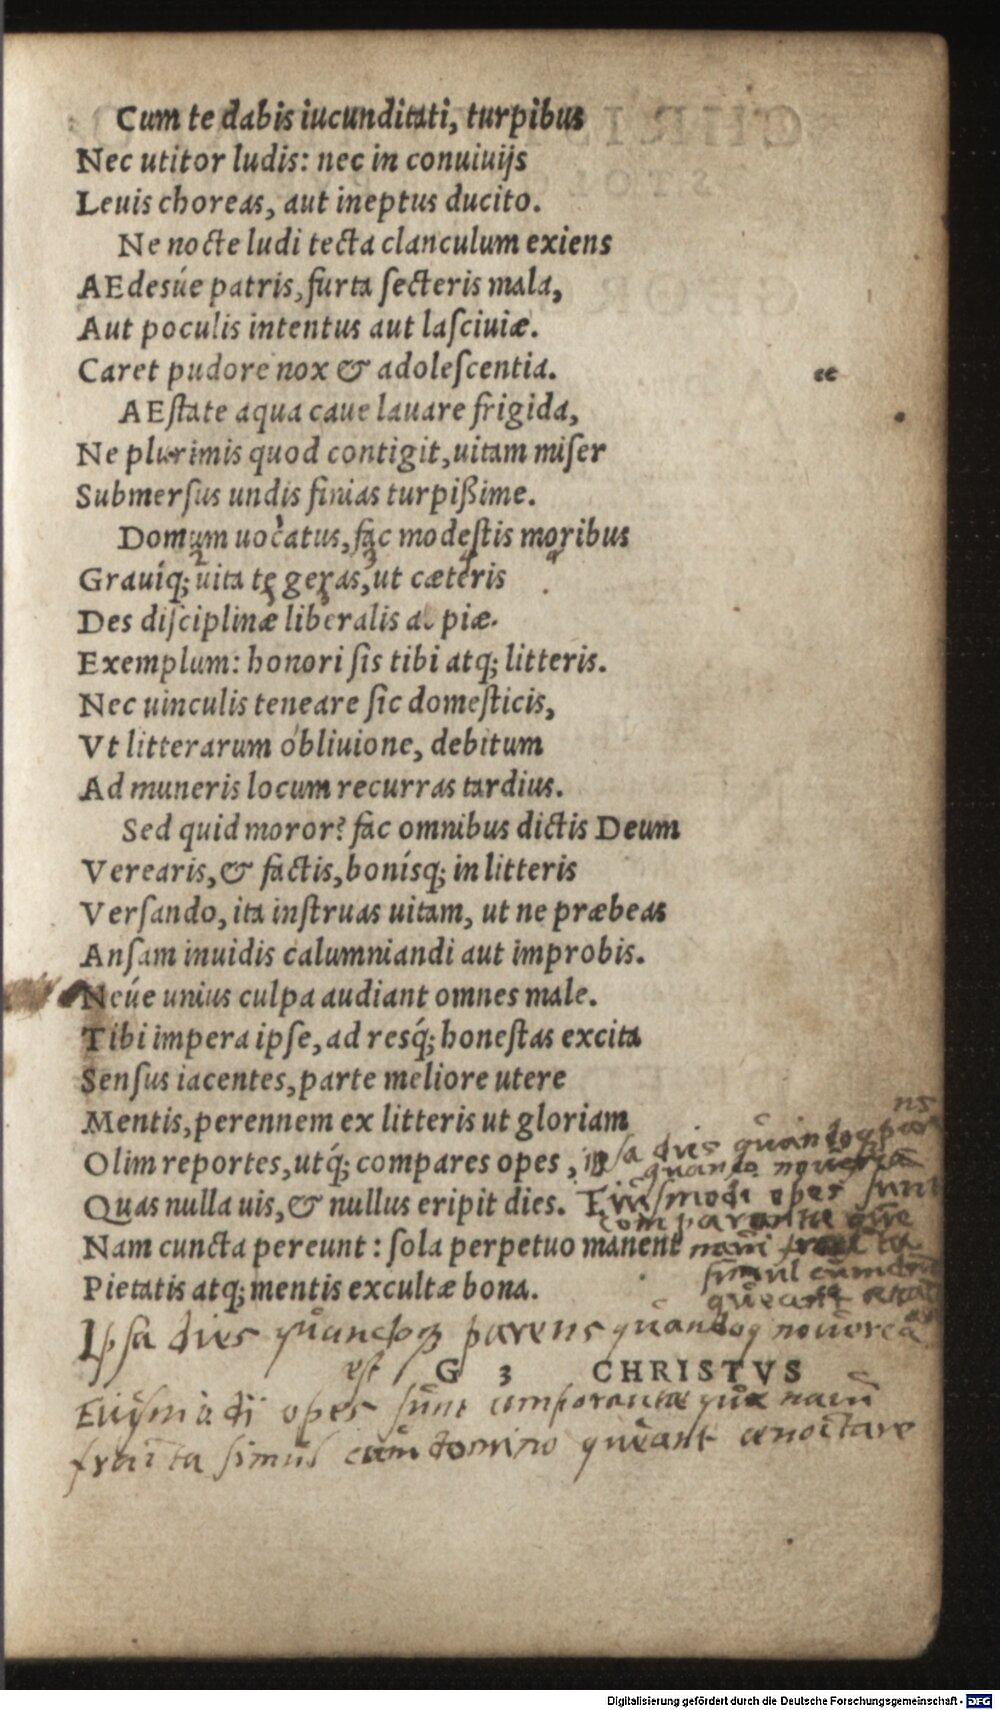 Cum te dabis iucunditati, turpibus
Nec utitor ludis: nec in conuiuijs
Leuis choreas, aut ineptus ducito.
Ne nocte ludi tecta clanculum exiens
AEdesúe patris, furta secteris mala,
Aut poculis intentus aut lasciuiæ.
Caret pudore nox & adolescentia.
AEstate aqua caue lauare frigida,
Ne plurimis quod contigit, uitam miser
Submersus undis finias turpißime.
Domum uocatus, fac modestis moribus
Grauíq; uita te geras, ut cæteris
Des disciplinæ liberalis ac piæ.
Exemplum: honori sis tibi atq; litteris.
Nec uinculis teneare sic domesticis,
Vt litterarum obliuione, debitum
Ad muneris locum recurras tardius.
Sed quid moror? fac omnibus dictis Deum
Verearis, & factis, bonísq; in litteris
Versando, ita instruas uitam, ut ne præbeas
Ansam inuidis calumniandi aut improbis.
Neúe unius culpa audiant omnes male.
Tibi impera ipse, ad resq́; honestas excita
Sensus iacentes, parte meliore utere
Mentis, perennem ex litteris ut gloriam
Olim reportes, utq́; compares opes, ipsa dies quandoq; parens
quandoq; nouerca
Quas nulla uis, & nullus eripit dies. Eiusmodi opes sunt
comparandæ quæ
Nam cuncta pereunt: sola perpetuo manent naufracta
simul cum domino
Pietatis atq; mentis excultæ bona. queant enatare
Ipsa dies quandoq; parens quandoq nouerca
est
G 3 CHRISTVS
Eiusmodi opes sunt comparandæ quæ nau
fracta simul cum domino queant enoctare